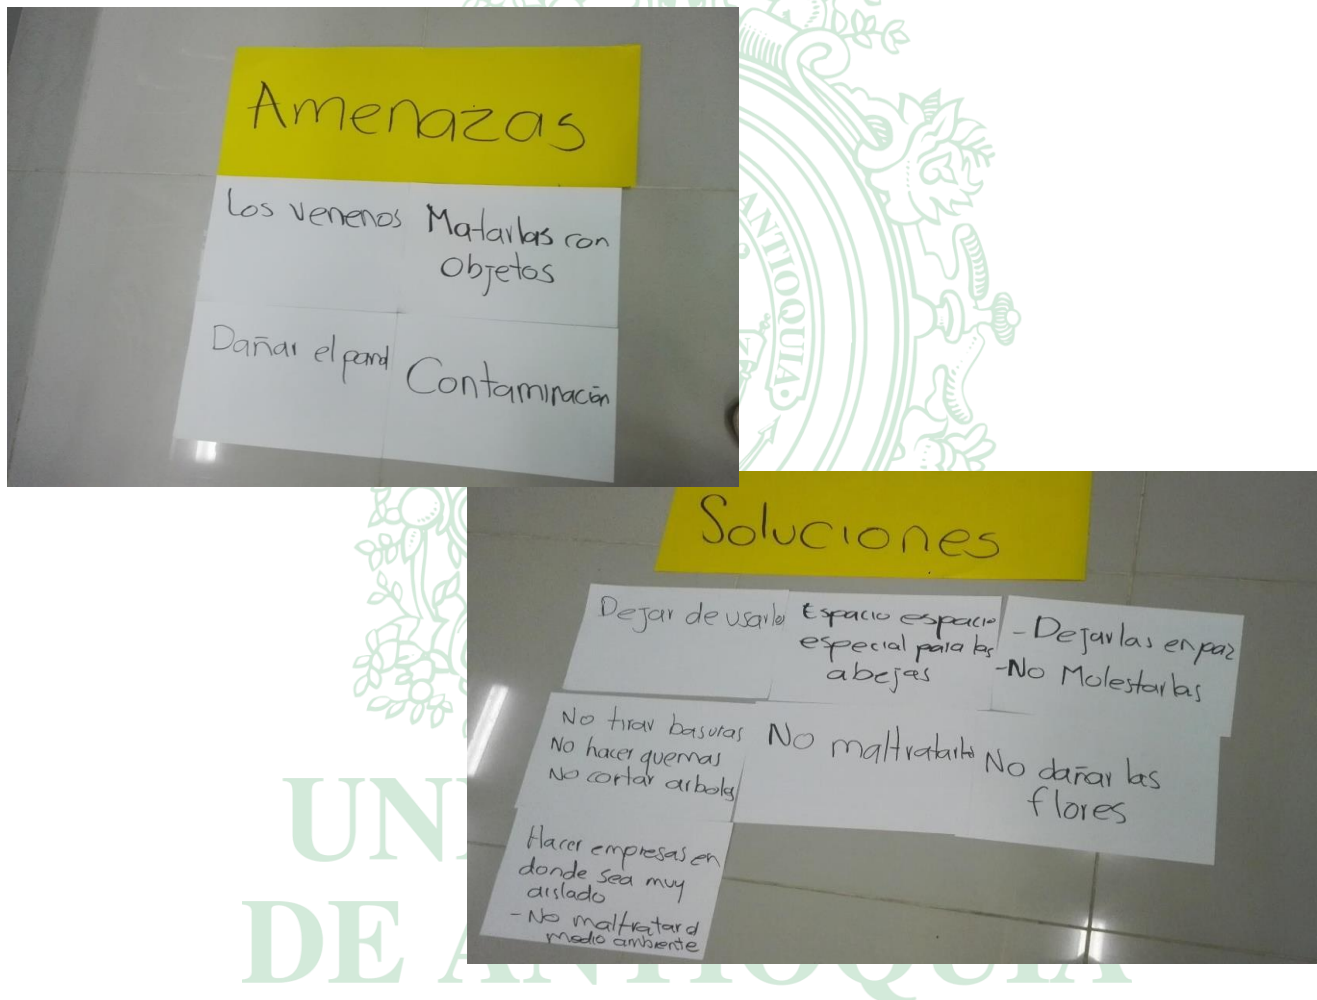 Amenazas
Los venenos
Matarlas con
Objetos
Dañar el panal
Contaminación
ANTIOQUIA
Soluciones
Dejar de usarlos
Espacio espacio
especial para las
abejas
- Dejarlas en paz
- No Molestarlas
No tirar basuras
No hacer quemas
No cortar arboles
No maltratarlo
No dañar las
flores
Hacer empresas en
donde sea muy
aislado
- No maltratar el
medio ambiente
UNI
DE ANTIOQUIA